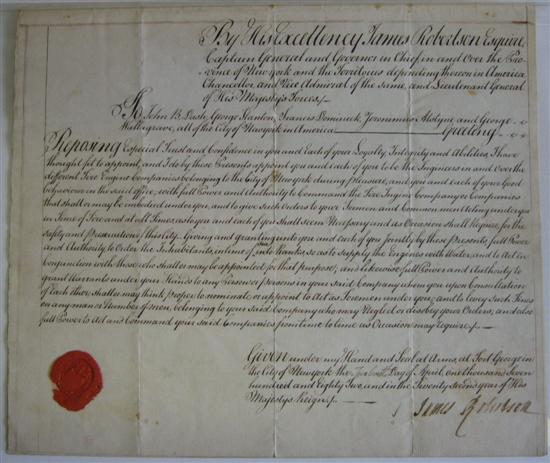 By His Excellency James Robertson Esquire,
Captain General and Governor in Chief in and Over the Pro-
vince of New york and the Territories depending thereon in America
Chancellor and Vice Admiral of the same, and Lieutenant General
of His Majesty's Forces /-
To John B. Dash, George Stanton, Francis Dominick, Jeronimus Alstyne, and George
Waltegrave, all of the City of New york in America Greeting
Reposing Especial Trust and Confidence in you and Each of your Loyalty, Integrity and Abilities, I have
thought fit to appoint, and I do by these Presents appoint you and each of you to be the Engineers in and Over the
different Fire Engine Companies belonging to the City of New york during Pleasure, and you and each of your Good
behaviour in the said office, with full Power and Authority to Command the Fire Engine Company or Companies
that shall or may be embodied under you, and to give such Orders to your Foremen and Common men belonging under you
in Time of Fire and at all Times, as to you and each of you shall seem Necessary and as Occasion shall Require for the
safety and Preservation of this City. Giving and granting unto you and each of you Jointly by these Presents full Power
and Authority to Order the Inhabitants, in time of fire into Ranks, so as to supply the Engines with Water, and to Act in
Conjunction with those who shall or may be appointed for that purpose, and likewise full Power and Authority to
grant Warrants under your Hands to any Person or Persons in your said Company whom you upon Consultation
of Each other, shall or may think Proper to nominate or appoint to Act as Foremen under you, and to levy such Fines
on any man or Number of men, belonging to your said Company who may Neglect or disobey your Orders, and also
full Power to Act and Command your said Companies from time to time as Occasion may Require /-
Given under my Hand and Seal at Arms, at Fort George in
the City of New york the Day of April, one thousand Seven
hundred and Eighty Two, and in the Twenty second year of His
Majestys Reign /-
James Robertson